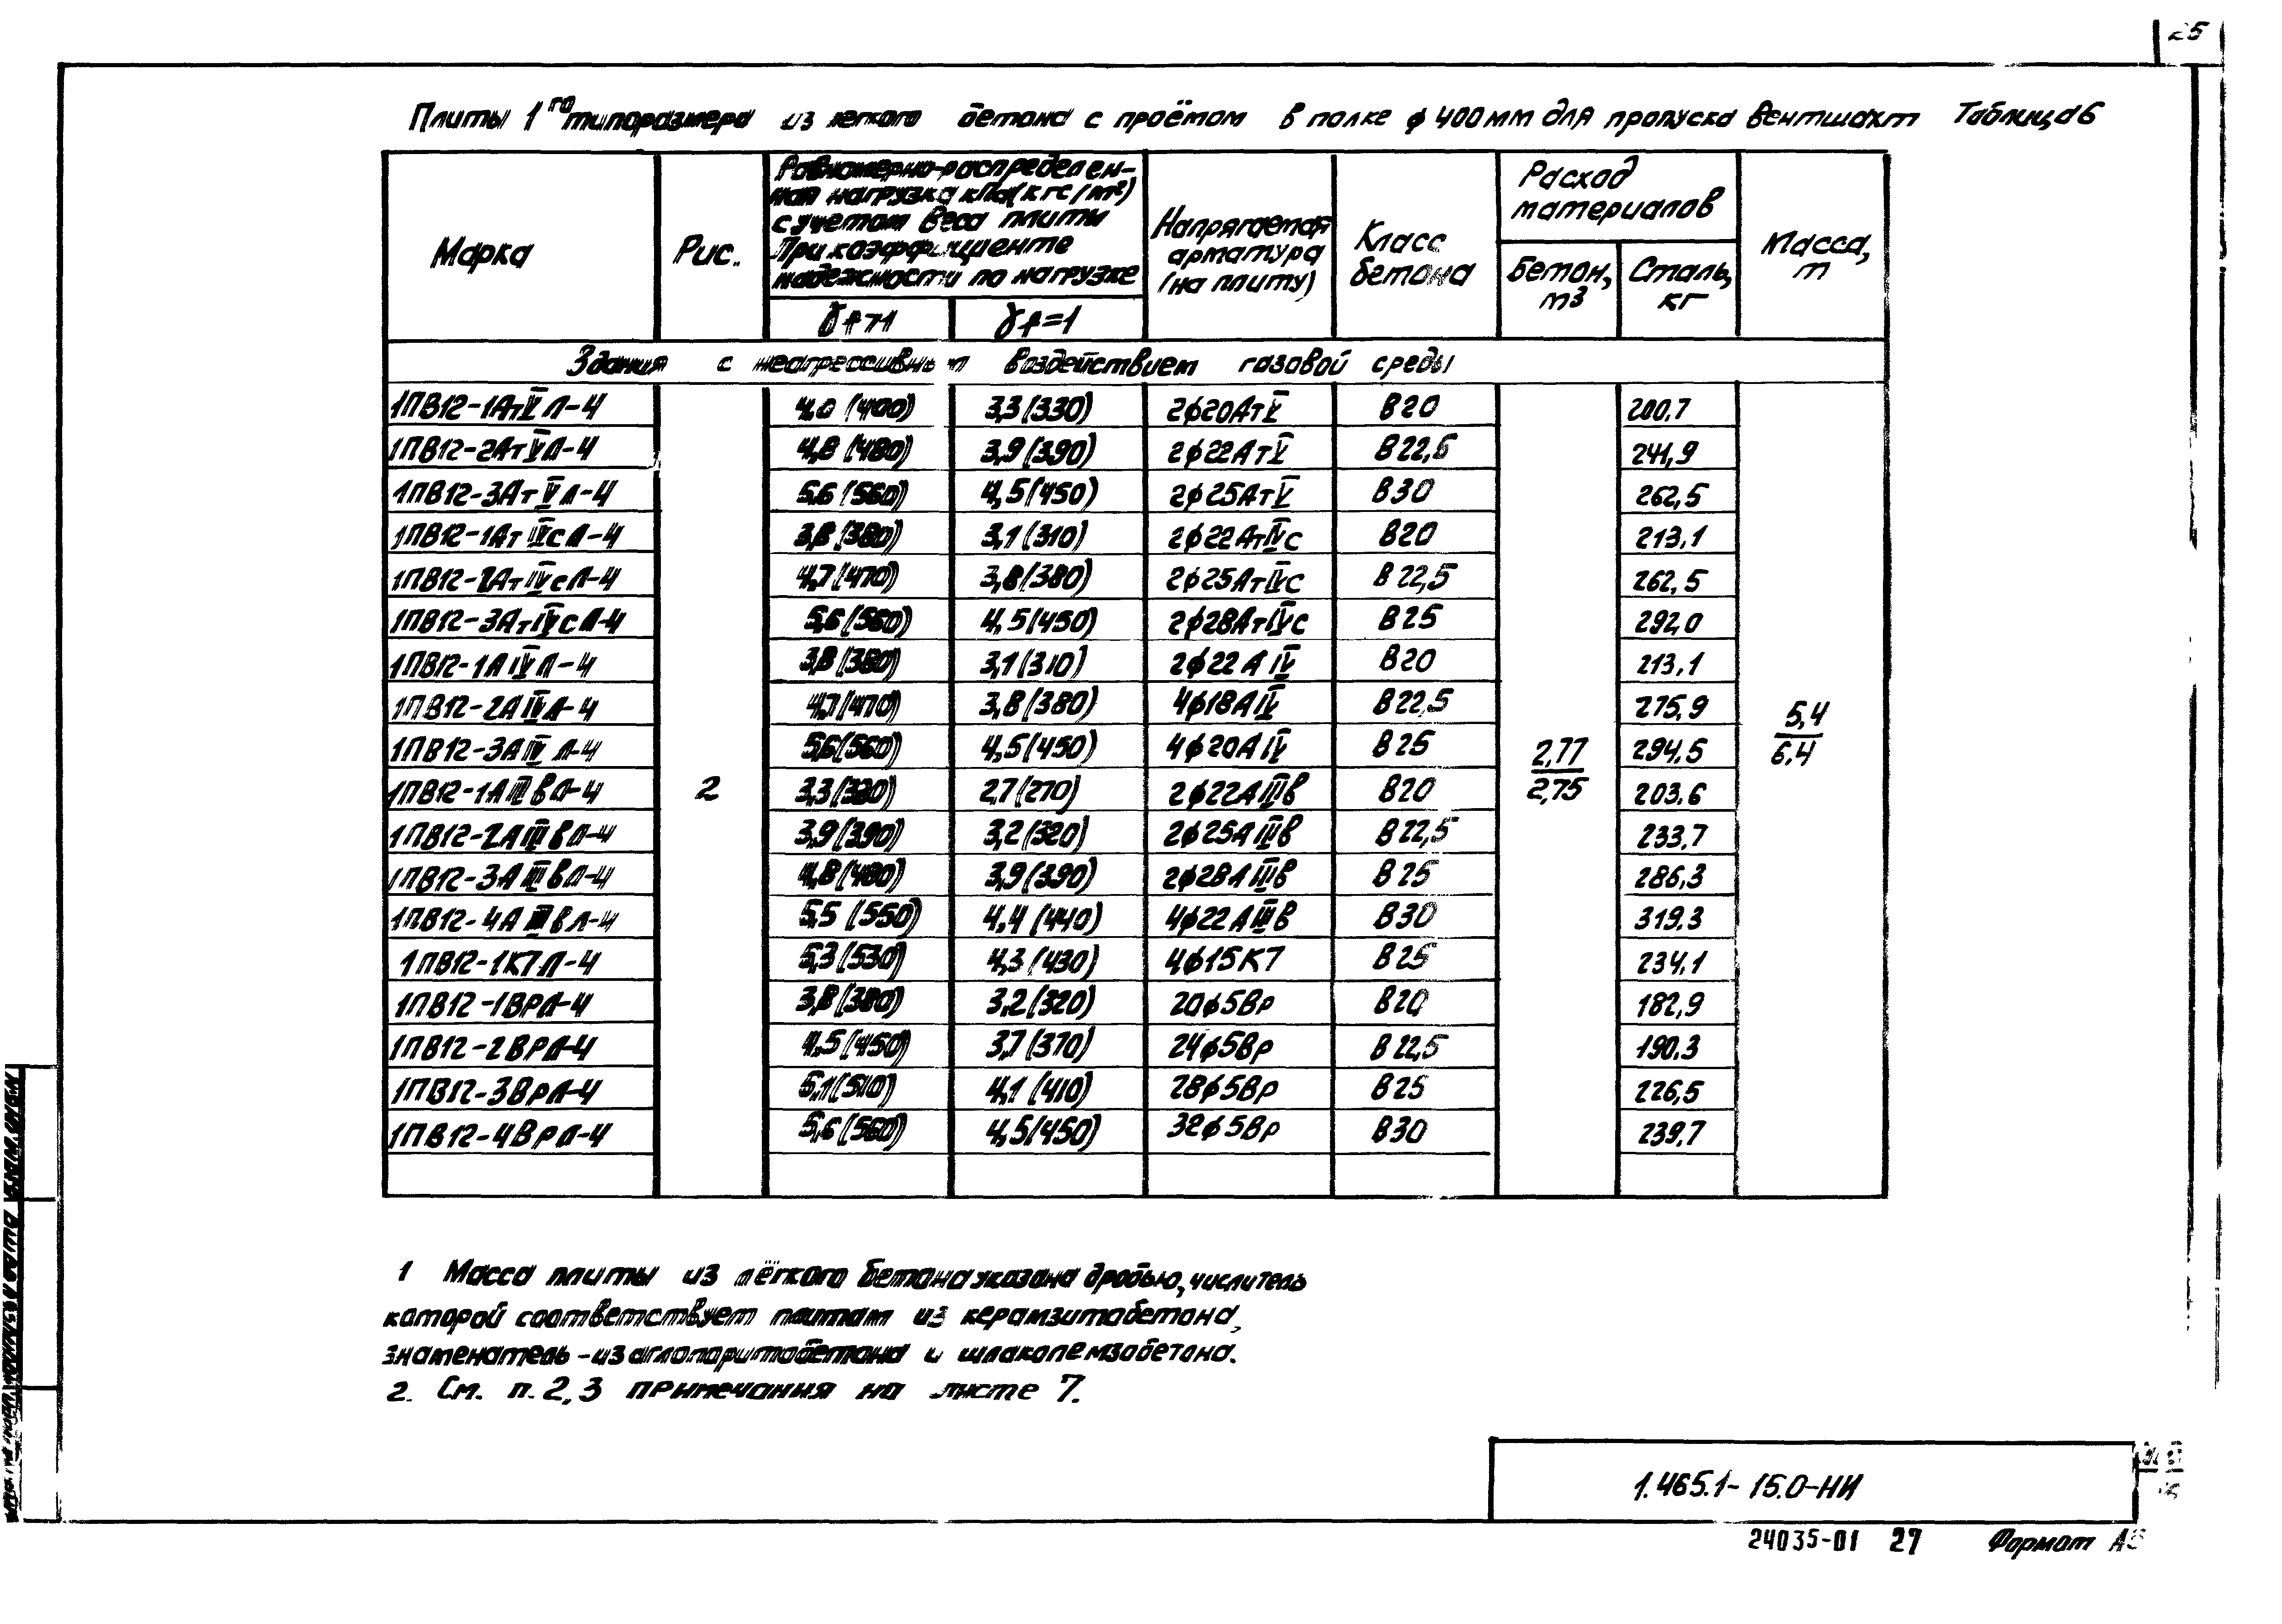 25
Плиты 1го типоразмера из легкого бетона с проёмом в полке ф 400 мм для пропуска вентшахт Таблица 6
Марка
Рис.
Равномерно-распределен-
ная нагрузка кПа (кгс/м²)
с учетом веса плиты
При коэффициенте
надежности по нагрузке
γf>1
γf=1
Напрягаемая
арматура
(на плиту)
Класс
бетона
Расход
материалов
Бетон,
м3
Сталь,
кг
Масса,
т
Здания с неагрессивным воздействием газовой среды
1ПВ12-1АтVЛ-4 4,0 (400) 3,3 (330) 2ф20АтV В20 200,7
1ПВ12-2АтVЛ-4 4,8 (480) 3,9 (390) 2ф22АтV В22,5 241,9
1ПВ12-3АтVЛ-4 5,6 (560) 4,5 (450) 2ф25АтV В30 262,5
1ПВ12-1АтIVсЛ-4 3,8 (380) 3,1 (310) 2ф22АтIVс В20 213,1
1ПВ12-2АтIVсЛ-4 4,7 (470) 3,8 (380) 2ф25АтIVс В22,5 262,5
1ПВ12-3АтIVсЛ-4 5,6 (560) 4,5 (450) 2ф28АтIVс В25 292,0
1ПВ12-1АIVЛ-4 3,8 (380) 3,1 (310) 2ф22АIV В20 213,1
1ПВ12-2АIVЛ-4 4,7 (470) 3,8 (380) 4ф18АIV В22,5 275,9
1ПВ12-3АIVЛ-4 5,6 (560) 4,5 (450) 4ф20АIV В25 294,5
1ПВ12-1АIIIвЛ-4 3,3 (330) 2,7 (270) 2ф22АIIIв В20 203,6
1ПВ12-2АIIIвЛ-4 3,9 (390) 3,2 (320) 2ф25АIIIв В22,5 233,7
1ПВ12-3АIIIвЛ-4 4,8 (480) 3,9 (390) 2ф28АIIIв В25 286,3
1ПВ12-4АIIIвЛ-4 5,5 (550) 4,4 (440) 4ф22АIIIв В30 319,3
1ПВ12-1К7Л-4 5,3 (530) 4,3 (430) 4ф15К7 В25 234,1
1ПВ12-1ВРЛ-4 3,8 (380) 3,2 (320) 20ф5Вр В20 182,9
1ПВ12-2ВРЛ-4 4,5 (450) 3,7 (370) 24ф5Вр В22,5 190,3
1ПВ12-3ВрЛ-4 5,1 (510) 4,1 (410) 28ф5Вр В25 226,5
1ПВ12-4ВрЛ-4 5,6 (560) 4,5 (450) 32ф5Вр В30 239,7
2
2,77
2,75
5,4
6,4
1 Масса плиты из лёгкого бетона указана дробью, числитель
которой соответствует плитам из керамзитобетона,
знаменатель - из аглопоритобетона и шлакопемзобетона.
2. См. п. 2,3 примечания на листе 7.
1.465.1-15.0-НИ
24035-01 27 Формат